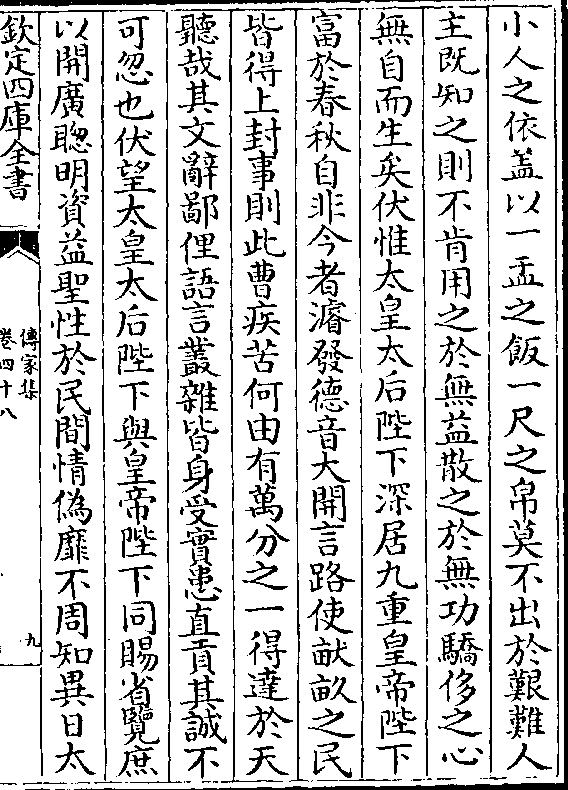 小人之依盖以一盂之飯一尺之帛莫不出於艱難人
主既知之則不肯用之於無益散之於無功驕侈之心
無自而生矣伏惟太皇太后陛下深居九重皇帝陛下
富於春秋自非今者濬發德音大開言路使畎畝之民
皆得上封事則此曹疾苦何由有萬分之一得達於天
聽哉其文辭鄙俚語言叢雜皆身受實患直貢其誠不
可忽也伏望太皇太后陛下與皇帝陛下同賜省覽庶
以開廣聰明資益聖性於民間情偽靡不周知異日太
欽定四庫全書
傳家集
卷四十八
九